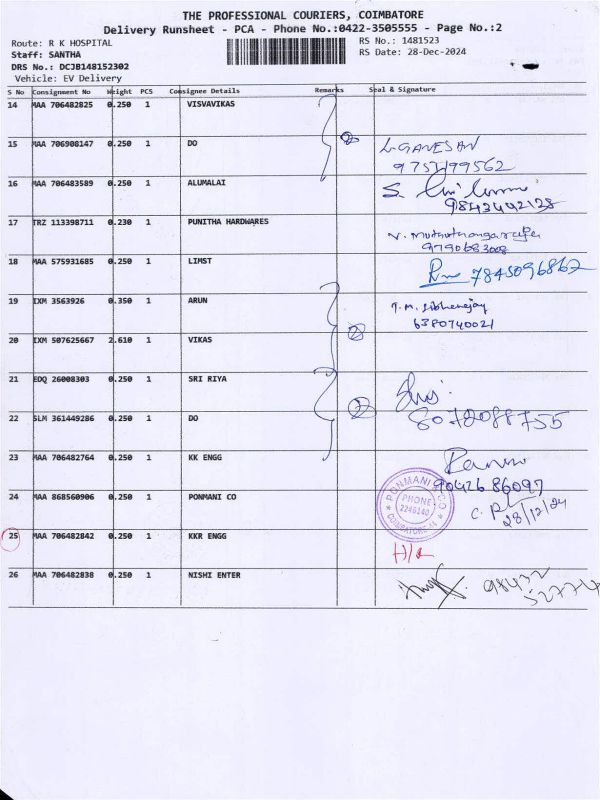 THE PROFESSIONAL COURIERS, COIMBATORE
Delivery Runsheet - PCA - Phone No.:0422-3505555 - Page No.:2
Route: R K HOSPITAL
RS No.: 1481523
Staff: SANTHA
RS Date: 28-Dec-2024
DRS No.: DCJB148152302
Vehicle: EV Delivery
S No Consignment No Weight PCS Consignee Details Remarks Seal & Signature
14 MAA 706482825 0.250 1 VISVAVIKAS
15 MAA 706908147 0.250 1 DO 2 L GANESAN
16 MAA 706483589 0.250 1 ALUMALAI S.
9843442128
17 TRZ 113398711 0.230 1 PUNITHA HARDWARES
9790683008
18 MAA 575931685 0.250 1 LIMST 7845096862
19 IXM 3563926 0.350 1 ARUN T.M.
6380740021
20 IXM 507625667 2.610 1 VIKAS 2
21 EDQ 26008303 0.250 1 SRI RIYA 2
8072088755
22 SLM 361449286 0.250 1 DO
23 MAA 706482764 0.250 1 KK ENGG
9042686097
24 MAA 868560906 0.250 1 PONMANI CO PONMANI & CO
PHONE
2246140
COIMBATORE
28/12/24
25 MAA 706482842 0.250 1 KKR ENGG
26 MAA 706482838 0.250 1 NISHI ENTER 98432
52774